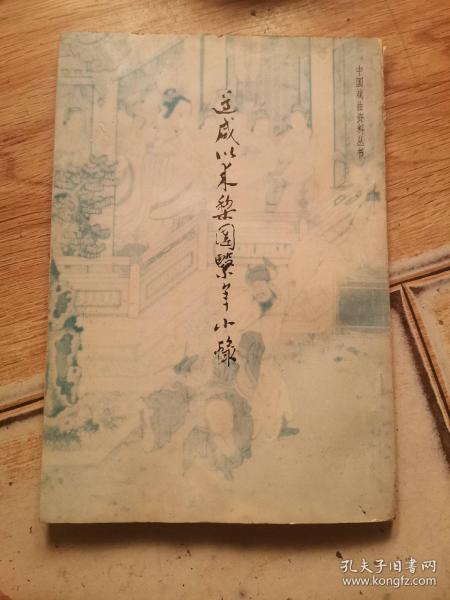 中国戏曲资料丛书
道咸以来梨园繫年小録
孔夫子旧书网
www.kongfz.com